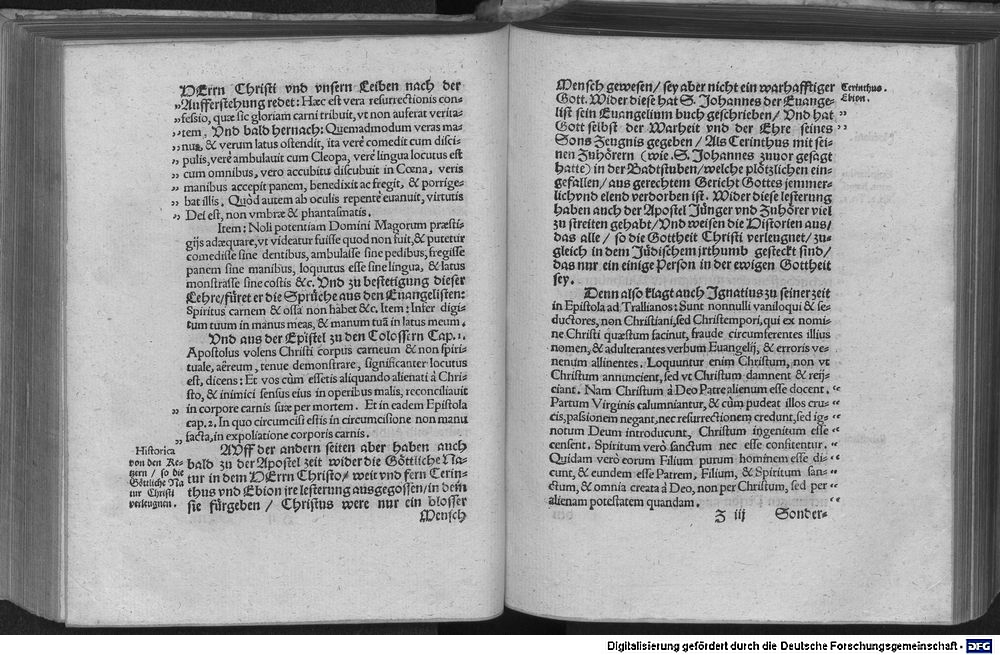 HErrn Christi vnd vnsern Leiben nach der
„Aufferstehung redet: Hæc est vera resurrectionis con-
„fessio, quæ sic gloriam carni tribuit, vt non auferat verita-
„tem. Vnd bald hernach: Quemadmodum veras ma-
„nus, & verum latus ostendit, ita verè comedit cum disci-
„pulis, verè ambulauit cum Cleopa, verè lingua locutus est
„cum omnibus, vero accubitu discubuit in Cœna, veris
„manibus accepit panem, benedixit ac fregit, & porrige-
„bat illis. Quòd autem ab oculis repentè euanuit, virtutis
„Dei est, non vmbræ & phantasmatis.
Item: Noli potentiam Domini Magorum præsti-
gijs adæquare, vt videatur fuisse quod non fuit, & putetur
comedisse sine dentibus, ambulasse sine pedibus, fregisse
panem sine manibus, loquutus esse sine lingua, & latus
monstrasse sine costis &c. Vnd zu bestetigung dieser
Lehre/ füret er die Sprüche aus den Euangelisten:
Spiritus carnem & ossa non habet &c. Item: Infer digi-
tum tuum in manus meas, & manum tuā in latus meum.
Vnd aus der Epistel zu den Colossern Cap. 1.
Apostolus volens Christi corpus carneum & non spiri-
tuale, aëreum, tenue demonstrare, significanter locutus
est, dicens: Et vos cùm essetis aliquando alienati à Chri-
sto, & inimici sensus eius in operibus malis, reconciliauit
„ in corpore carnis suæ per mortem. Et in eadem Epistola
cap. 2. In quo circumcisi estis in circumcisione non manu
„ facta, in expoliatione corporis carnis.
Historica
von den Ke-
tzern / so die
Göttliche Na
tur Christi
verleugnen.
AVff der andern seiten aber haben auch
bald zu der Apostel zeit wider die Göttliche Na-
tur in dem HErrn Christo/ weit vnd fern Cerin-
thus vnd Ebion jre lesterung ausgegossen/ in dem
sie fürgeben / Christus were nur ein blosser
Mensch
Mensch gewesen/ sey aber nicht ein warhafftiger
Gott. Wider diese hat S. Johannes der Euange-
list sein Euangelium buch geschrieben/ Vnd hat
Gott selbst der Warheit vnd der Ehre seines
Sons Zeugnis gegeben/ Als Cerinthus mit sei-
nen Zuhörern (wie S. Johannes zuuor gesagt
hatte) in der Badtstuben/ welche plötzlichen ein-
gefallen/ aus gerechtem Gericht Gottes jemmer-
lich vnd elend verdorben ist. Wider diese lesterung
haben auch der Apostel Jünger vnd Zuhörer viel
zu streiten gehabt/ Vnd weisen die Historien aus/
das alle / so die Gottheit Christi verleugnet/ zu-
gleich in dem Jüdischem jrthumb gesteckt sind/
das nur ein einige Person in der ewigen Gottheit
sey.
Cerinthus.
Ebion.
Denn also klagt auch Ignatius zu seiner zeit
in Epistola ad Trallianos: Sunt nonnulli vaniloqui & se-
ductores, non Christiani, sed Christempori, qui ex nomi-
ne Christi quæstum faciunt, fraude circumferentes illius
nomen, & adulterantes verbum Euangelij, & erroris ve-
nenum allinentes. Loquuntur enim Christum, non vt
Christum annuncient, sed vt Christum damnent & reij-
ciant. Nam Christum à Deo Patre alienum esse docent. “
Partum Virginis calumniantur, & cùm pudeat illos cru- “
cis, passionem negant, nec resurrectionem credunt, sed ig- “
notum Deum introducunt, Christum ingenitum esse “
censent. Spiritum verò sanctum nec esse confitentur. “
Quidam verò eorum Filium purum hominem esse di- “
cunt, & eundem esse Patrem, Filium, & Spiritum san- “
ctum, & omnia creata à Deo, non per Christum, sed per “
alienam potestatem quandam. “
Z iij Sonder-
Digitalisierung gefördert durch die Deutsche Forschungsgemeinschaft - DFG